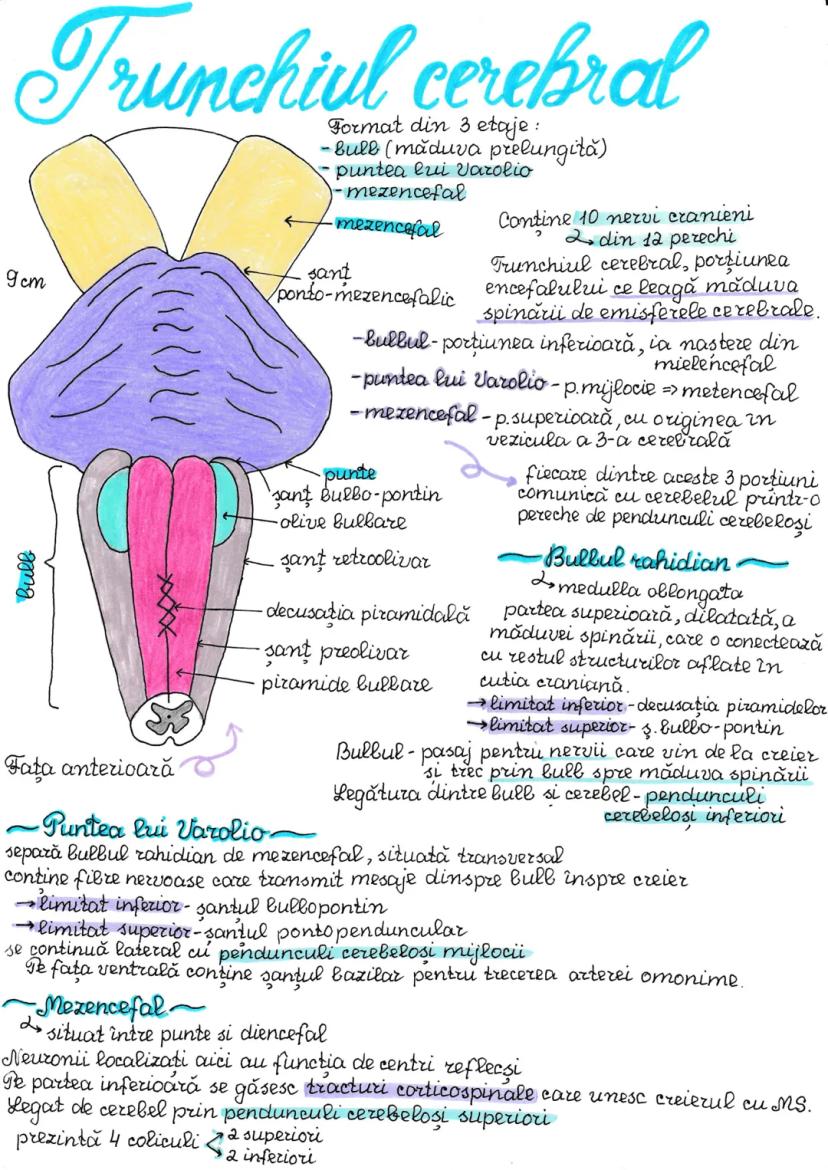 Trunchiul cerebral
Format din 3 etaje:
- bulb (măduva prelungită)
- puntea lui Varolio
- mezencefal
mezencefal
Conține 10 nervi cranieni
din 12 perechi
9 cm
șanț
ponto-mezencefalic
Trunchiul cerebral, porțiunea
encefalului ce leagă măduva
spinării de emisferele cerebrale.
- bulbul - porțiunea inferioară, ia nastere din
mielencefal
- puntea lui Varolio - p.mijlocie => metencefal
- mezencefal - p.superioară, cu originea în
vezicula a 3-a cerebrală
fiecare dintre aceste 3 porțiuni
comunică cu cerebelul printr-o
pereche de pendunculi cerebeloși
punte
șanț bulbo-pontin
olive bulbare
șanț retroolivar
decusația piramidală
șanț preolivar
piramide bulbare
bulb
Fața anterioară
Bulbul rahidian
medulla oblongata
partea superioară, dilatată, a
măduvei spinării, care o conectează
cu restul structurilor aflate în
cutia craniană.
→ limitat inferior - decusația piramidelor
→ limitat superior - ș. bulbo-pontin
Bulbul - pasaj pentru nervii care vin de la creier
și trec prin bulb spre măduva spinării
Legătura dintre bulb si cerebel - pendunculi
cerebeloși inferiori
Puntea lui Varolio
separă bulbul rahidian de mezencefal, situată transversal
conține fibre nervoase care transmit mesaje dinspre bulb înspre creier
→ limitat inferior - șanțul bulbopontin
→ limitat superior - șanțul pontopenduncular
se continuă lateral cu pendunculi cerebeloși mijlocii
Pe fața ventrală conține șanțul bazilar pentru trecerea arterei omonime.
Mezencefal
situat între punte si diencefal
Neuronii localizați aici au funcția de centri reflecși
Pe partea inferioară se găsesc tracturi corticospinale care unesc creierul cu MS.
Legat de cerebel prin pendunculi cerebeloși superiori
prezintă 4 coliculi
2 superiori
2 inferiori